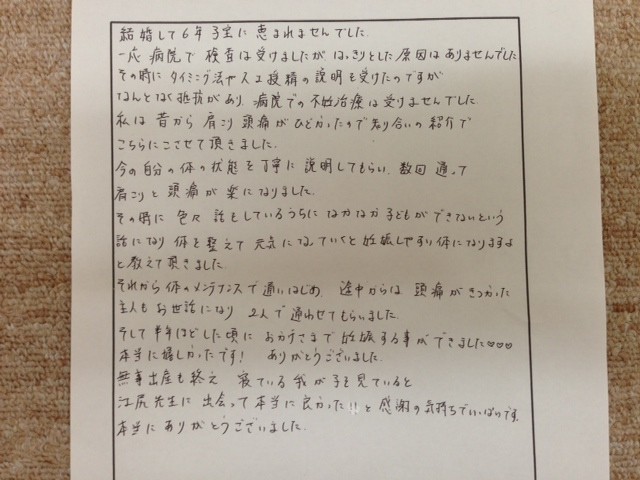 結婚して6年子宝に恵まれませんでした
一応病院で検査は受けましたがはっきりとした原因はありませんでした
その時にタイミング法や人工授精の説明も受けたのですが
なんとなく抵抗があり、病院での不妊治療は受けませんでした
私は昔から肩こり頭痛がひどかったので知り合いの紹介で
こちらにこさせて頂きました。
今の自分の体の状態を丁寧に説明してもらい、数回通って
肩こりと頭痛が楽になりました。
その時に色々話をしているうちになかなか子どもができないという
話になり体を整えて元気になっていくと妊娠しやすい体になりますよ
と教えて頂きました。
それから体のメンテナンスで通いはじめ、途中からは頭痛がきつかった
主人もお世話になり2人で通わせてもらいました。
そして半年ほどした頃におかげさまで妊娠する事ができました♡♡♡
本当に嬉しかったです!ありがとうございました。
無事出産も終え寝ている我が子を見ていると
江尻先生に出会って本当に良かった!!と感謝の気持ちでいっぱいです。
本当にありがとうございました。